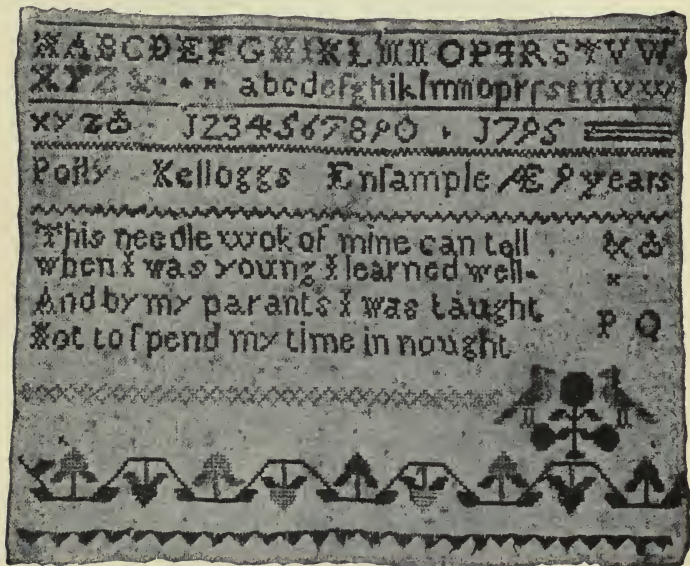 XABCDEFGHIKLMNOPQRSTVW
XYZ& abcdefghiklmnopqrſstuvwx
xyz& J234567890 , J795
Polly Kelloggs Enſample Æ 9 years
This needle wok of mine can tell
when I was young I learned well
And by my parants I was taught
Not to ſpend my time in nought
P Q